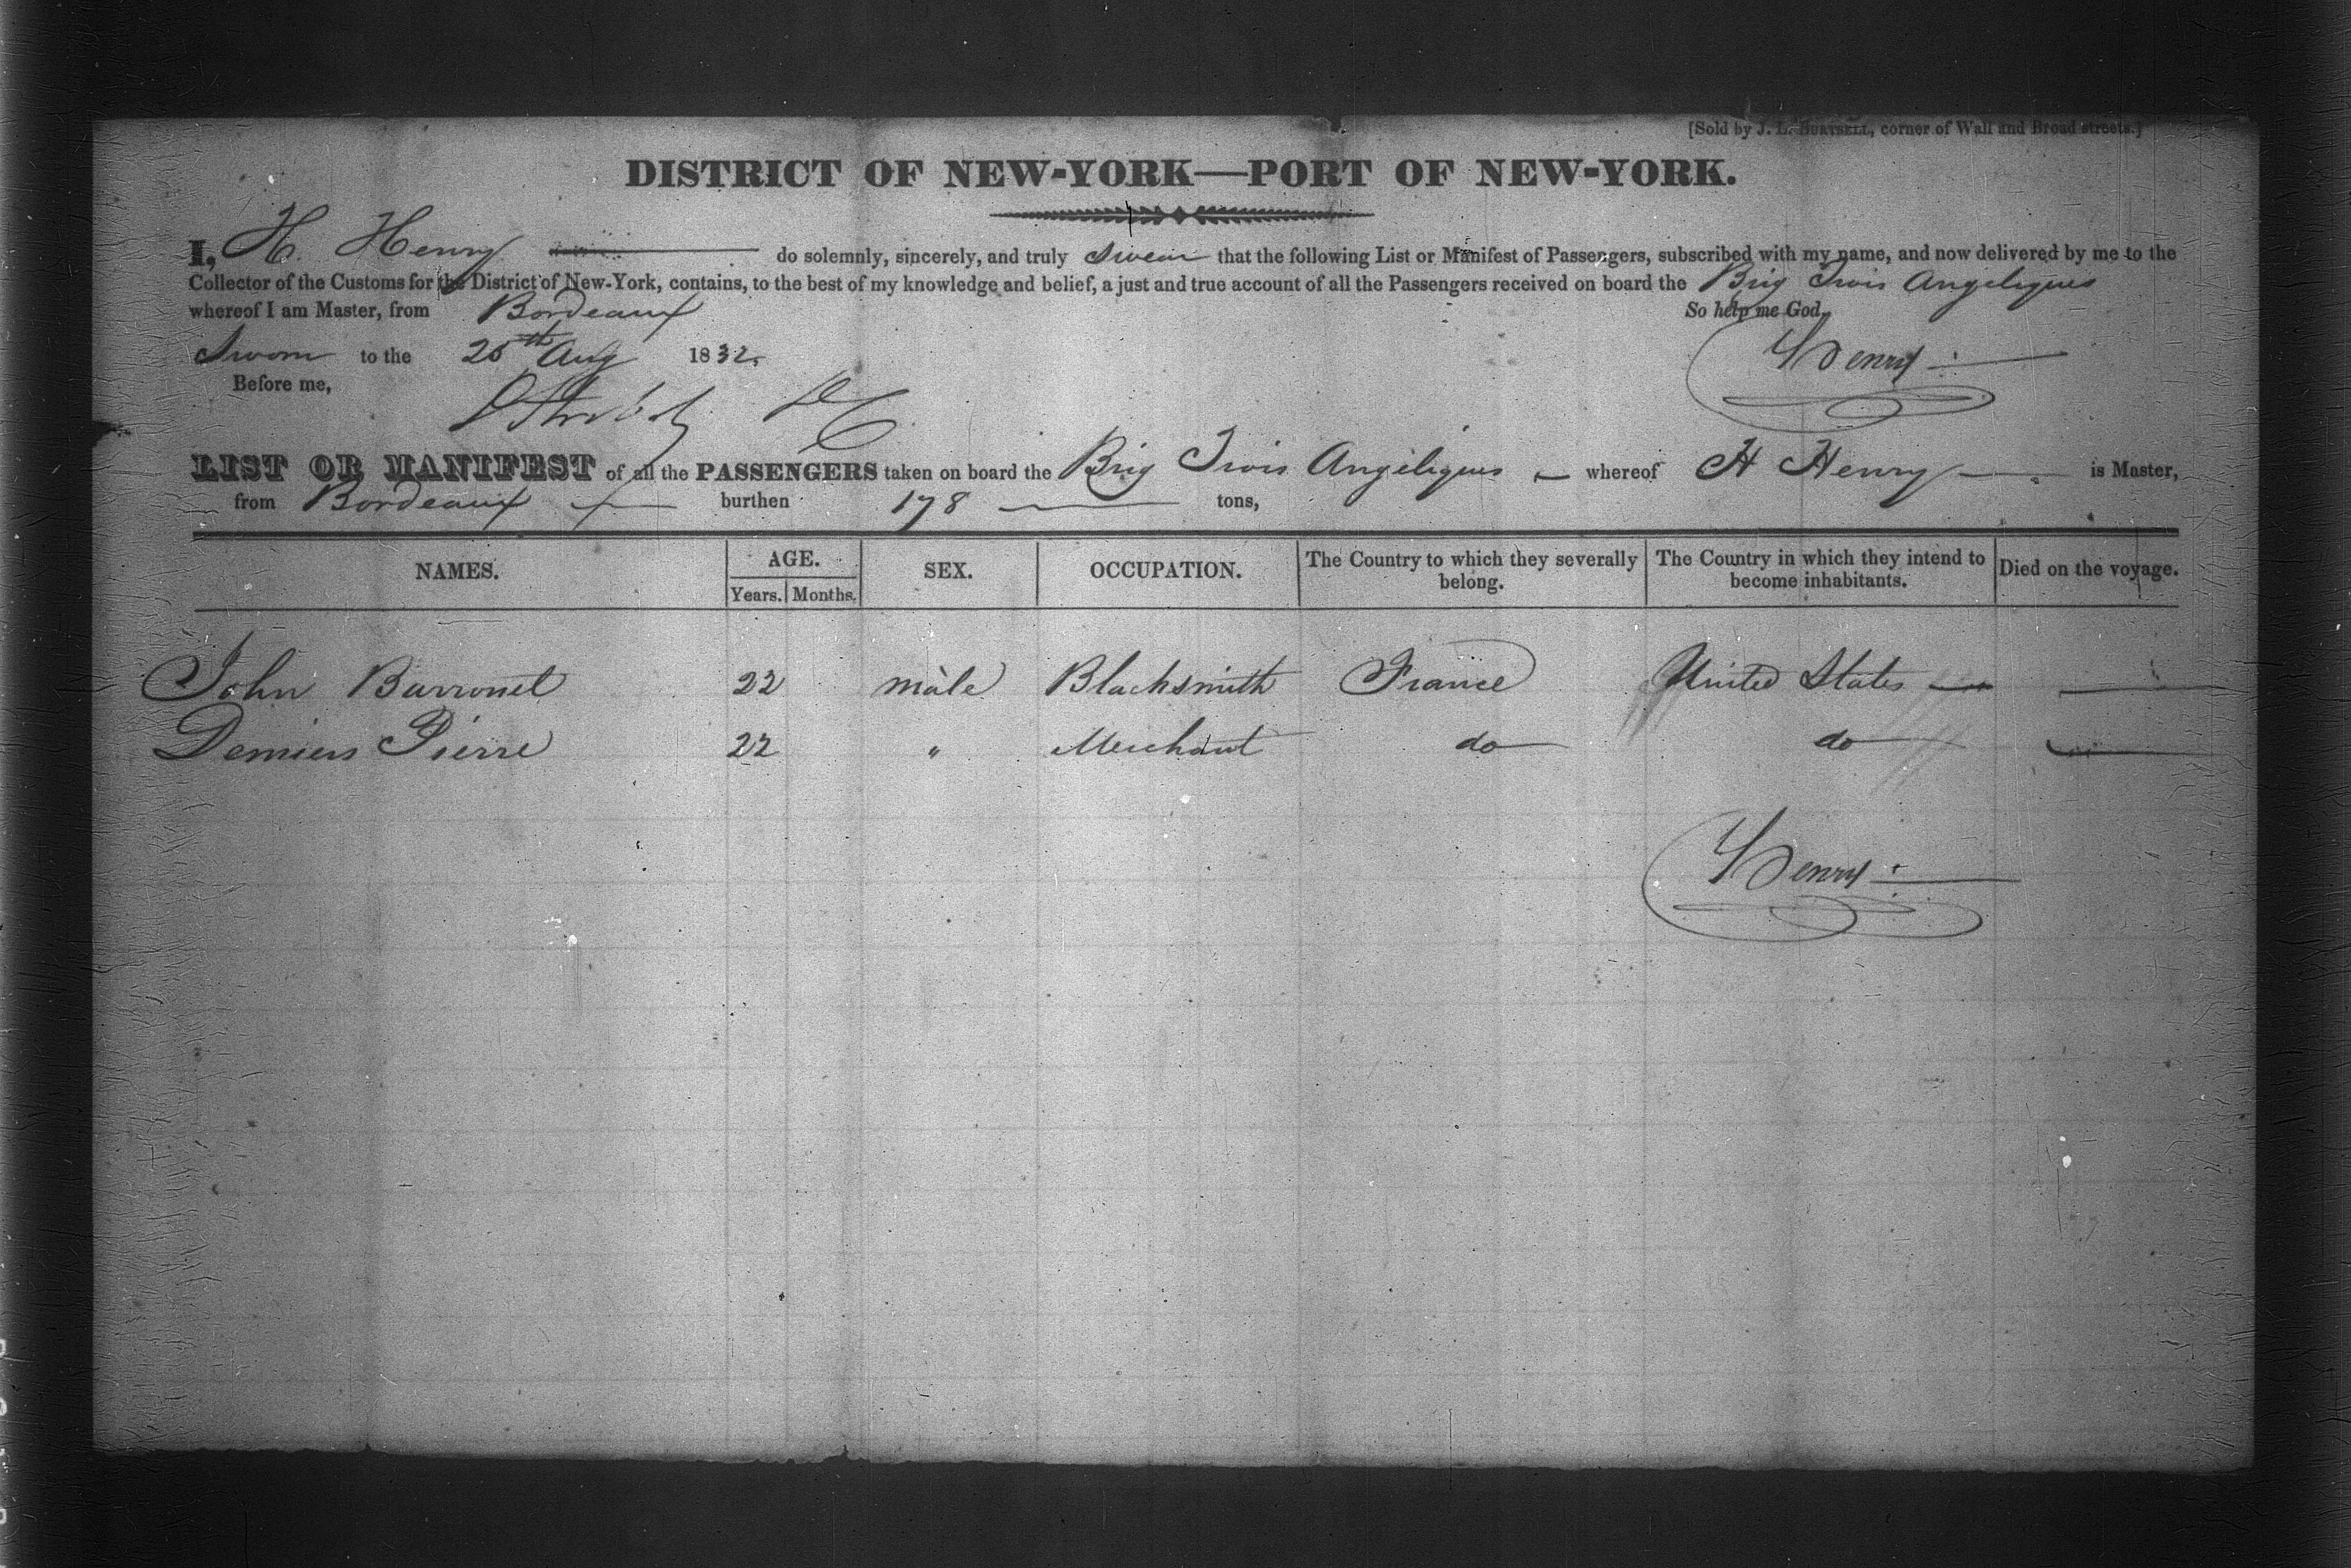 [Sold by J. L. BURTSELL, corner of Wall and Broad streets.]
DISTRICT OF NEW-YORK—PORT OF NEW-YORK.
I, H. Henry do solemnly, sincerely, and truly swear that the following List or Manifest of Passengers, subscribed with my name, and now delivered by me to the
Collector of the Customs for the District of New-York, contains, to the best of my knowledge and belief, a just and true account of all the Passengers received on board the Brig Trois Angeliques
whereof I am Master, from Bordeaux So help me God.
Sworn to the 25th Aug 1832. Henry
Before me,
LIST OR MANIFEST of all the PASSENGERS taken on board the Brig Trois Angeliques whereof H Henry is Master,
from Bordeaux burthen 178 tons,
NAMES. AGE. Years. Months. SEX. OCCUPATION. The Country to which they severally belong. The Country in which they intend to become inhabitants. Died on the voyage.
John Barronet 22 male Blacksmith France United States —
Demiers Pierre 22 " Merchant do do —
Henry